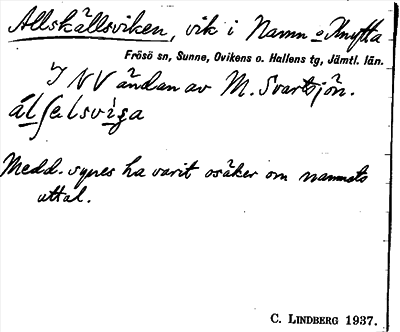 Allskällsviken, vik i Namn o Knytta
Frösö sn, Sunne, Ovikens o. Hallens tg, Jämtl. län.
I NV ändan av M. Svartsjön.
álʃelsviga
Medd. synes ha varit osäker om namnets
uttal.
C. LINDBERG 1937.